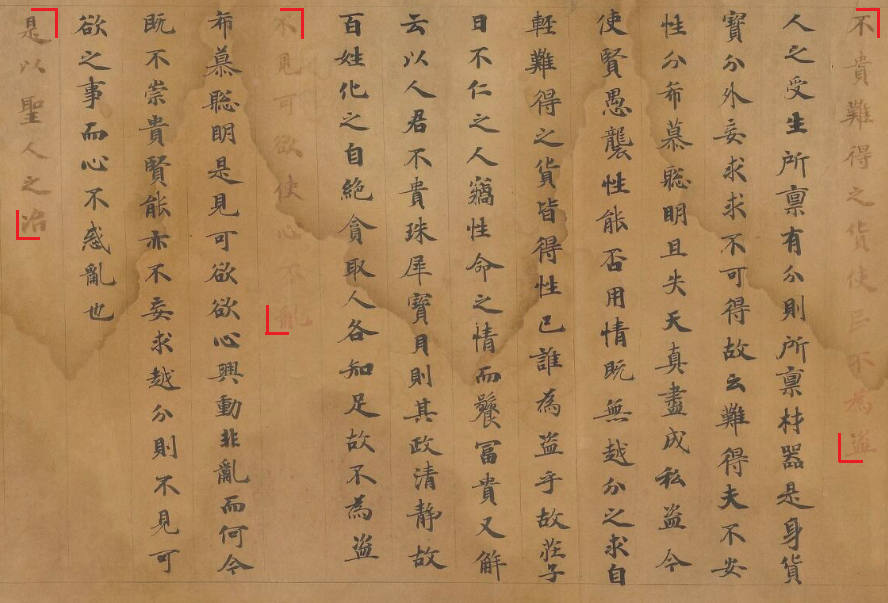 不貴難得之貨使民不為盜
人之受生所禀有分則所禀材器是身貨
寶分外妄求求不可得故云難得夫不安
性分希慕聡明且失天真盡成私盜今
使賢愚襲性能否用情既無越分之求自
輕難得之貨皆得性已誰為盜乎故莊子
曰不仁之人竊性命之情而饕富貴又解
云以人君不貴珠犀寶貝則其政清静故
百姓化之自絶貪取人各知足故不為盜
不見可欲使心不亂
希慕聡明是見可欲欲心興動非亂而何今
既不崇貴賢能亦不妄求越分則不見可
欲之事而心不惑亂也
是以聖人之治